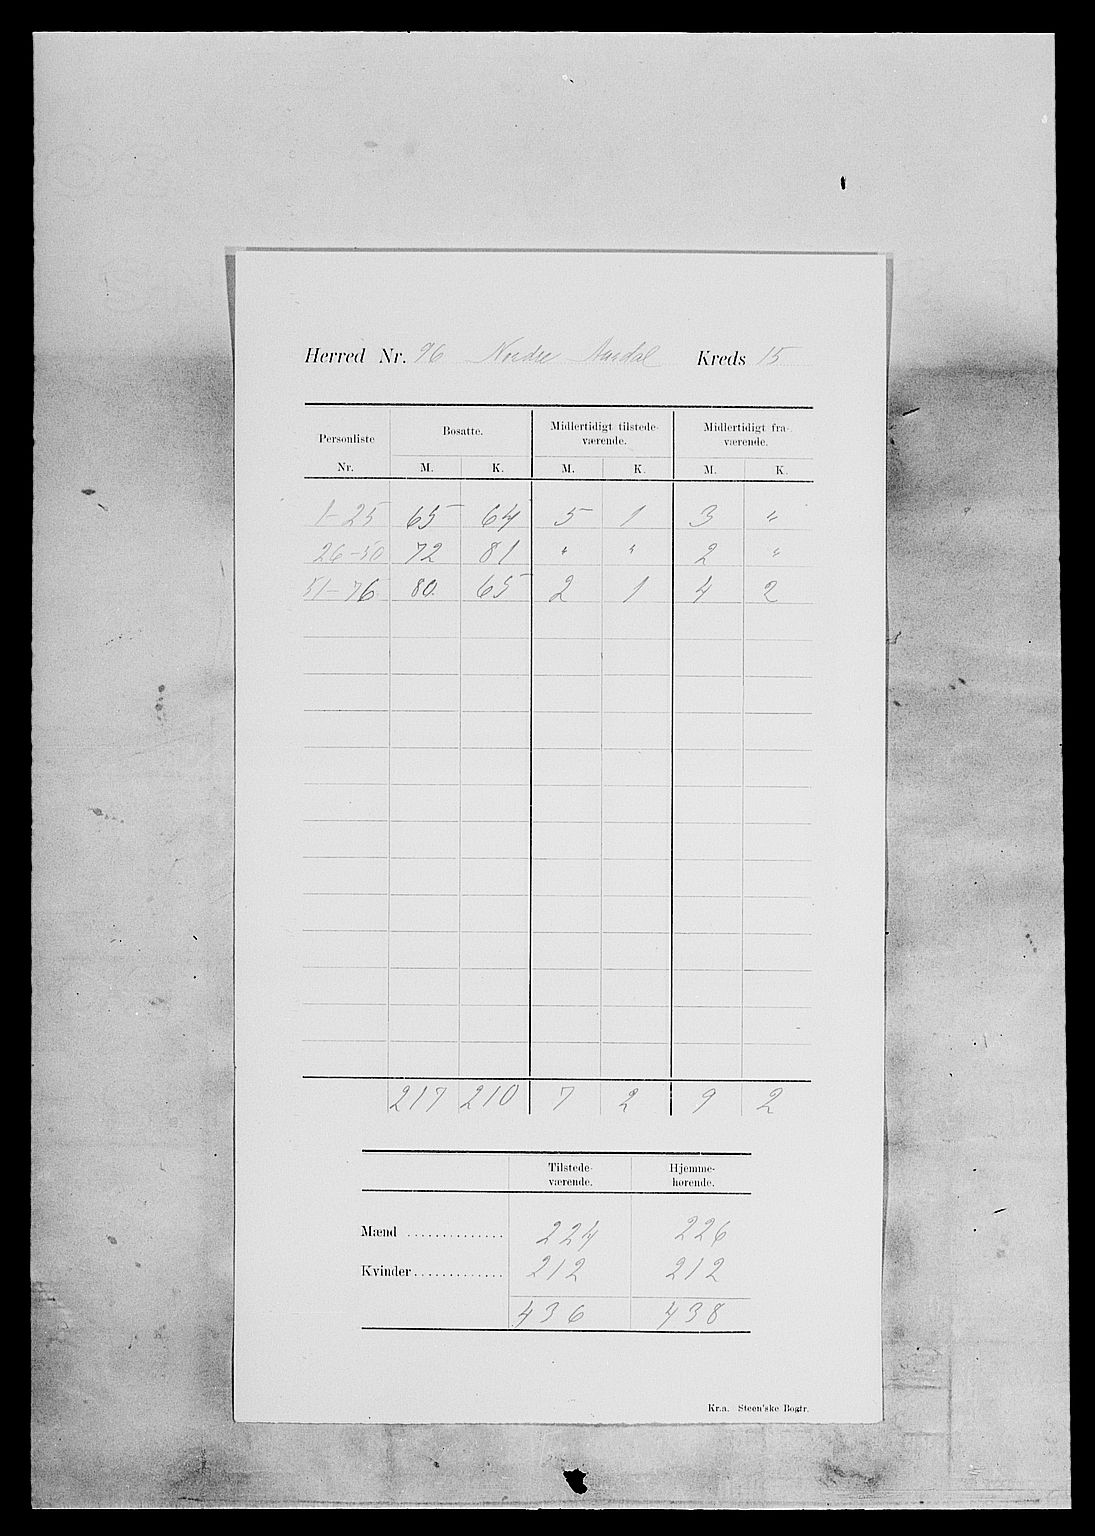 Herred Nr. 96 Nordre Aurdal Kreds 15
Personliste Nr. Bosatte. Midlertidigt tilstede-værende. Midlertidigt fra-værende.
M. K. M. K. M. K.
1-25 65 64 5 1 3 "
26-50 72 81 " " 2 "
51-76 80 65 2 1 4 2
217 210 7 2 9 2
Tilstede-værende. Hjemme-hørende.
Mænd .............. 224 226
Kvinder............. 212 212
436 438
Kr.a. Steen'ske Bogtr.